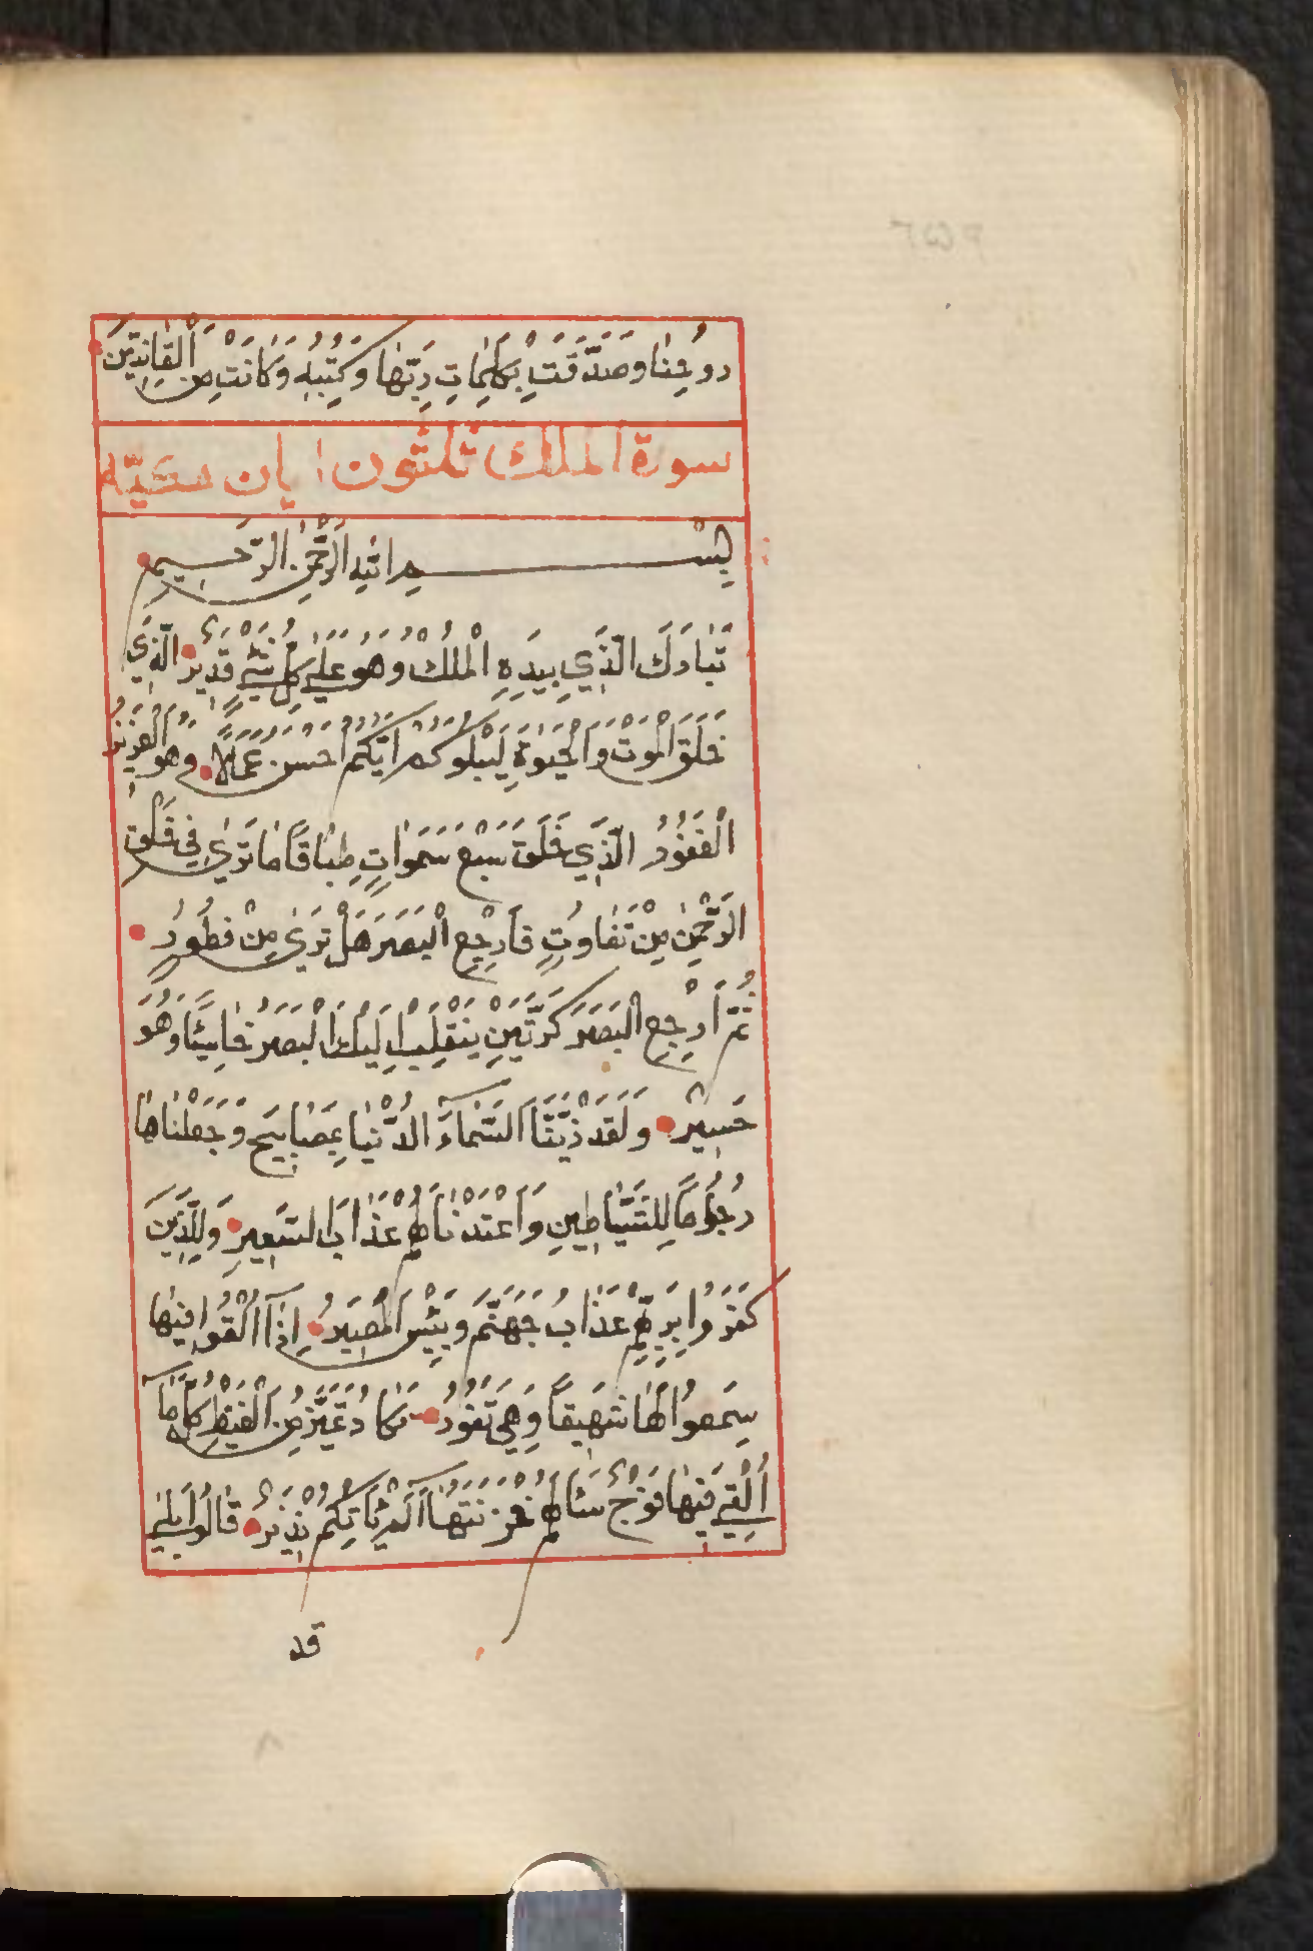 روحِنا وصدّقتْ بِكلِماتِ ربِّها وكُتُبِهِ وكانَتْ مِن القانِتِينَ
سورة الملك ثلثون ايات مكيّه
بِسْمِ اللهِ الرَّحْمٰنِ الرَّحِيمِ
تَبَارَكَ الَّذِي بِيَدِهِ الْمُلْكُ وَهُوَ عَلٰى كُلِّ شَيْءٍ قَدِيْرٌ الَّذِي
خَلَقَ الْمَوْتَ وَالْحَيٰوةَ لِيَبْلُوَكُمْ اَيُّكُمْ اَحْسَنُ عَمَلًا وَهُوَ الْعَزِيْزُ
الْغَفُوْرُ الَّذِي خَلَقَ سَبْعَ سَمٰوَاتٍ طِبَاقًا مَا تَرٰى فِي خَلْقِ
الرَّحْمٰنِ مِنْ تَفَاوُتٍ فَارْجِعِ الْبَصَرَ هَلْ تَرٰى مِنْ فُطُورٍ
ثُمَّ ارْجِعِ الْبَصَرَ كَرَّتَيْنِ يَنْقَلِبْ اِلَيْكَ الْبَصَرُ خَاسِئًا وَهُوَ
حَسِيْرٌ وَلَقَدْ زَيَّنَّا السَّمَآءَ الدُّنْيَا بِمَصَابِيحَ وَجَعَلْنَاهَا
رُجُوْمًا لِلشَّيَاطِينِ وَاَعْتَدْنَا لَهُمْ عَذَابَ السَّعِيرِ وَلِلَّذِينَ
كَفَرُوا بِرَبِّهِمْ عَذَابُ جَهَنَّمَ وَبِئْسَ الْمَصِيرُ اِذَآ اُلْقُوا فِيْهَا
سَمِعُوا لَهَا شَهِيقًا وَهِيَ تَفُوْرُ تَكَادُ تَمَيَّزُ مِنَ الْغَيْظِ كُلَّمَآ
اُلْقِيَ فِيْهَا فَوْجٌ سَئَالَهُمْ خَزَنَتُهَآ اَلَمْ يَاْتِكُمْ نَذِيْرٌ قَالُوا بَلٰى
قد